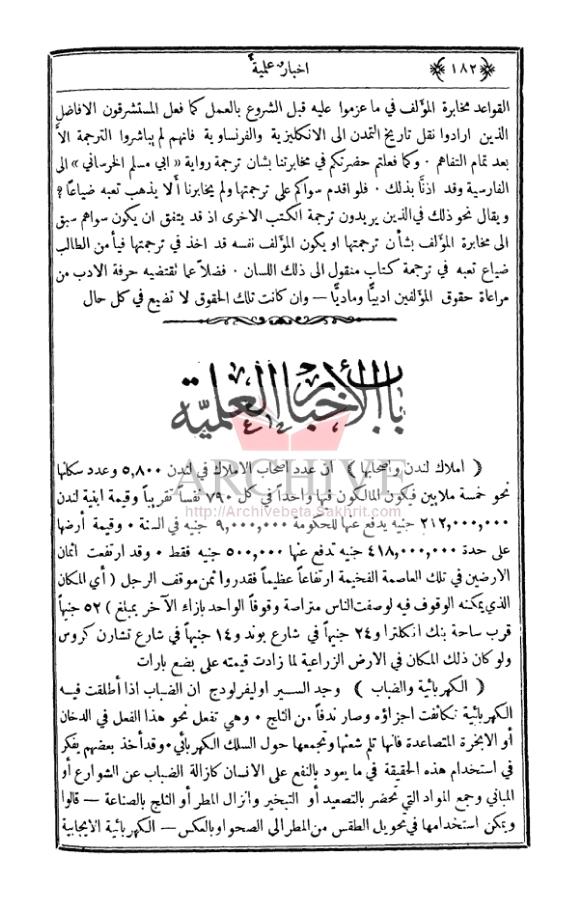 ﴿١٨٢﴾ اخبار علمية
القواعد مخابرة المؤلف في ما عزموا عليه قبل الشروع بالعمل كما فعل المستشرقون الافاضل
الذين ارادوا نقل تاريخ التمدن الى الانكليزية والفرنساوية فانهم لم يباشروا الترجمة الاَّ
بعد تمام التفاهم ٠ وكما فعلتم حضرتكم في مخابرتنا بشان ترجمة رواية « ابي مسلم الخرساني » الى
الفارسية وقد اذنَّا بذلك ٠ فلو اقدم سواكم على ترجمتها ولم يخابرنا أَلا يذهب تعبه ضياعاً ؟
ويقال نحو ذلك في الذين يريدون ترجمة الكتب الاخرى اذ قد يتفق ان يكون سواهم سبق
الى مخابرة المؤلف بشأن ترجمتها او يكون المؤلف نفسه قد اخذ في ترجمتها فيأمن الطالب
ضياع تعبه في ترجمة كتاب منقول الى ذلك اللسان ٠ فضلاً عما تقتضيه حرفة الادب من
مراعاة حقوق المؤلفين ادبيًّا وماديًّا — وان كانت تلك الحقوق لا تضيع في كل حال
باب الأخبار العلمية
( املاك لندن واصحابها ) ان عدد اصحاب الاملاك في لندن ٥,٨٠٠ وعدد سكانها
نحو خمسة ملايين فيكون المالكون فيها واحداً في كل ٧٩٠ نفساً تقريباً وقيمة ابنية لندن
٢١٢,٠٠٠,٠٠٠ جنيه يدفع عنها للحكومة ٩,٠٠٠,٠٠٠ جنيه في السنة ٠ وقيمة أرضها
على حدة ٤١٨,٠٠٠,٠٠٠ جنيه تدفع عنها ٥٠٠,٠٠٠ جنيه فقط ٠ وقد ارتفعت اثمان
الارضين في تلك العاصمة الفخيمة ارتفاعاً عظيماً فقدروا ثمن موقف الرجل ( أي المكان
الذي يمكنه الوقوف فيه لو صفت الناس متراصة وقوفاً الواحد بازاء الآخر بمبلغ ) ٥٢ جنيهاً
قرب ساحة بنك انكلترا و٢٤ جنيهاً في شارع بوند و١٤ جنيهاً في شارع تشارن كروس
ولو كان ذلك المكان في الارض الزراعية لما زادت قيمته على بضع بارات
( الكهربائية والضباب ) وجد السير اوليفر لودج ان الضباب اذا أطلقت فيه
الكهربائية تكاثفت اجزاؤه وصار ندفاً من الثلج ٠ وهي تفعل نحو هذا الفعل في الدخان
أو الابخرة المتصاعدة فانها تلم شعثها وتجمعها حول السلك الكهربائي ٠ وقد أخذ بعضهم يفكر
في استخدام هذه الحقيقة في ما يعود بالنفع على الانسان كازالة الضباب عن الشوارع أو
المباني وجمع المواد التي تحضر بالتصعيد أو التبخير وانزال المطر أو الثلج بالصناعة — قالوا
ويمكن استخدامها في تحويل الطقس من المطر الى الصحو او بالعكس — الكهربائية الايجابية
ARCHIVE
http://Archivebeta.Sakhrit.com